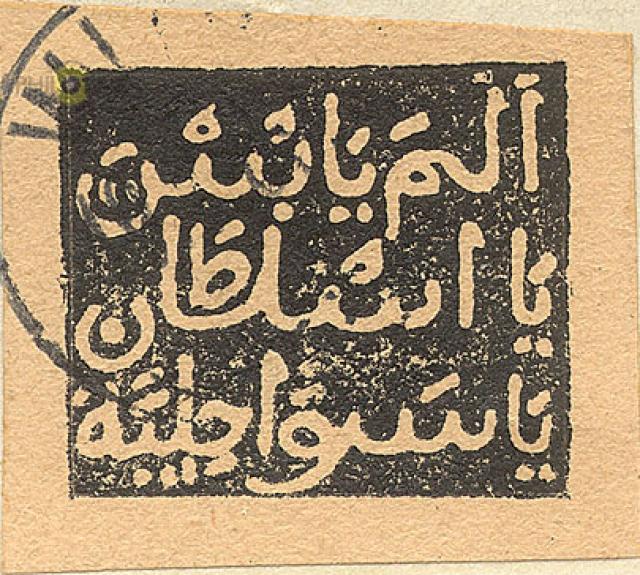 اَلْمَ يَابَسْن
يَا اسْلطَان
يَا سَوَاحِلِيَّة